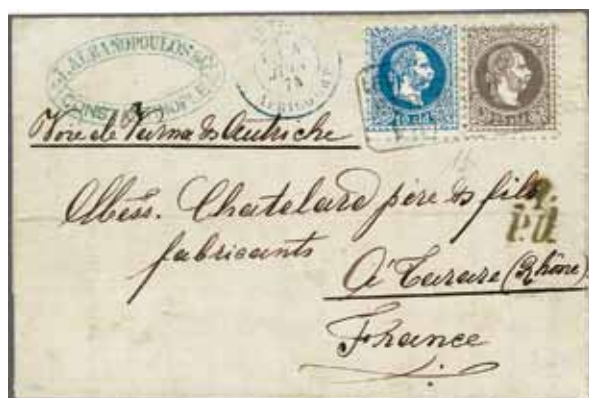 J. ALBANOPOULOS & C
CONSTANTINOPLE
JUIN
74
Voie de Varna & Autriche
Mess. Chatelard père & fils
fabricants
P.D.
À Tarare (Rhône)
France